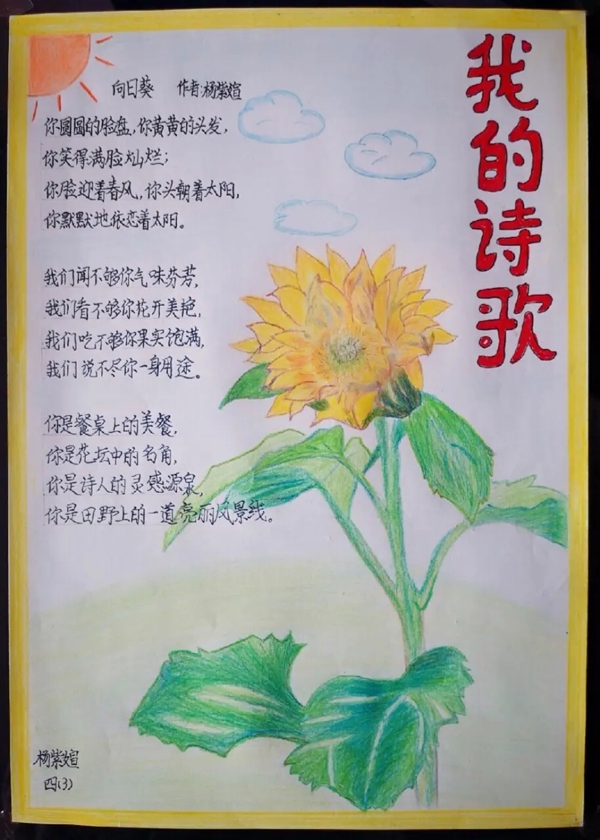 我的诗歌
向日葵 作者:杨紫媗
你圆圆的脸盘,你黄黄的头发,
你笑得满脸灿烂;
你脸迎着春风,你头朝着太阳,
你默默地依恋着太阳。
我们闻不够你气味芬芳,
我们看不够你花开美艳,
我们吃不够你果实饱满,
我们说不尽你一身用途。
你是餐桌上的美餐,
你是花坛中的名角,
你是诗人的灵感源泉,
你是田野上的一道亮丽风景线。
杨紫媗
四(3)